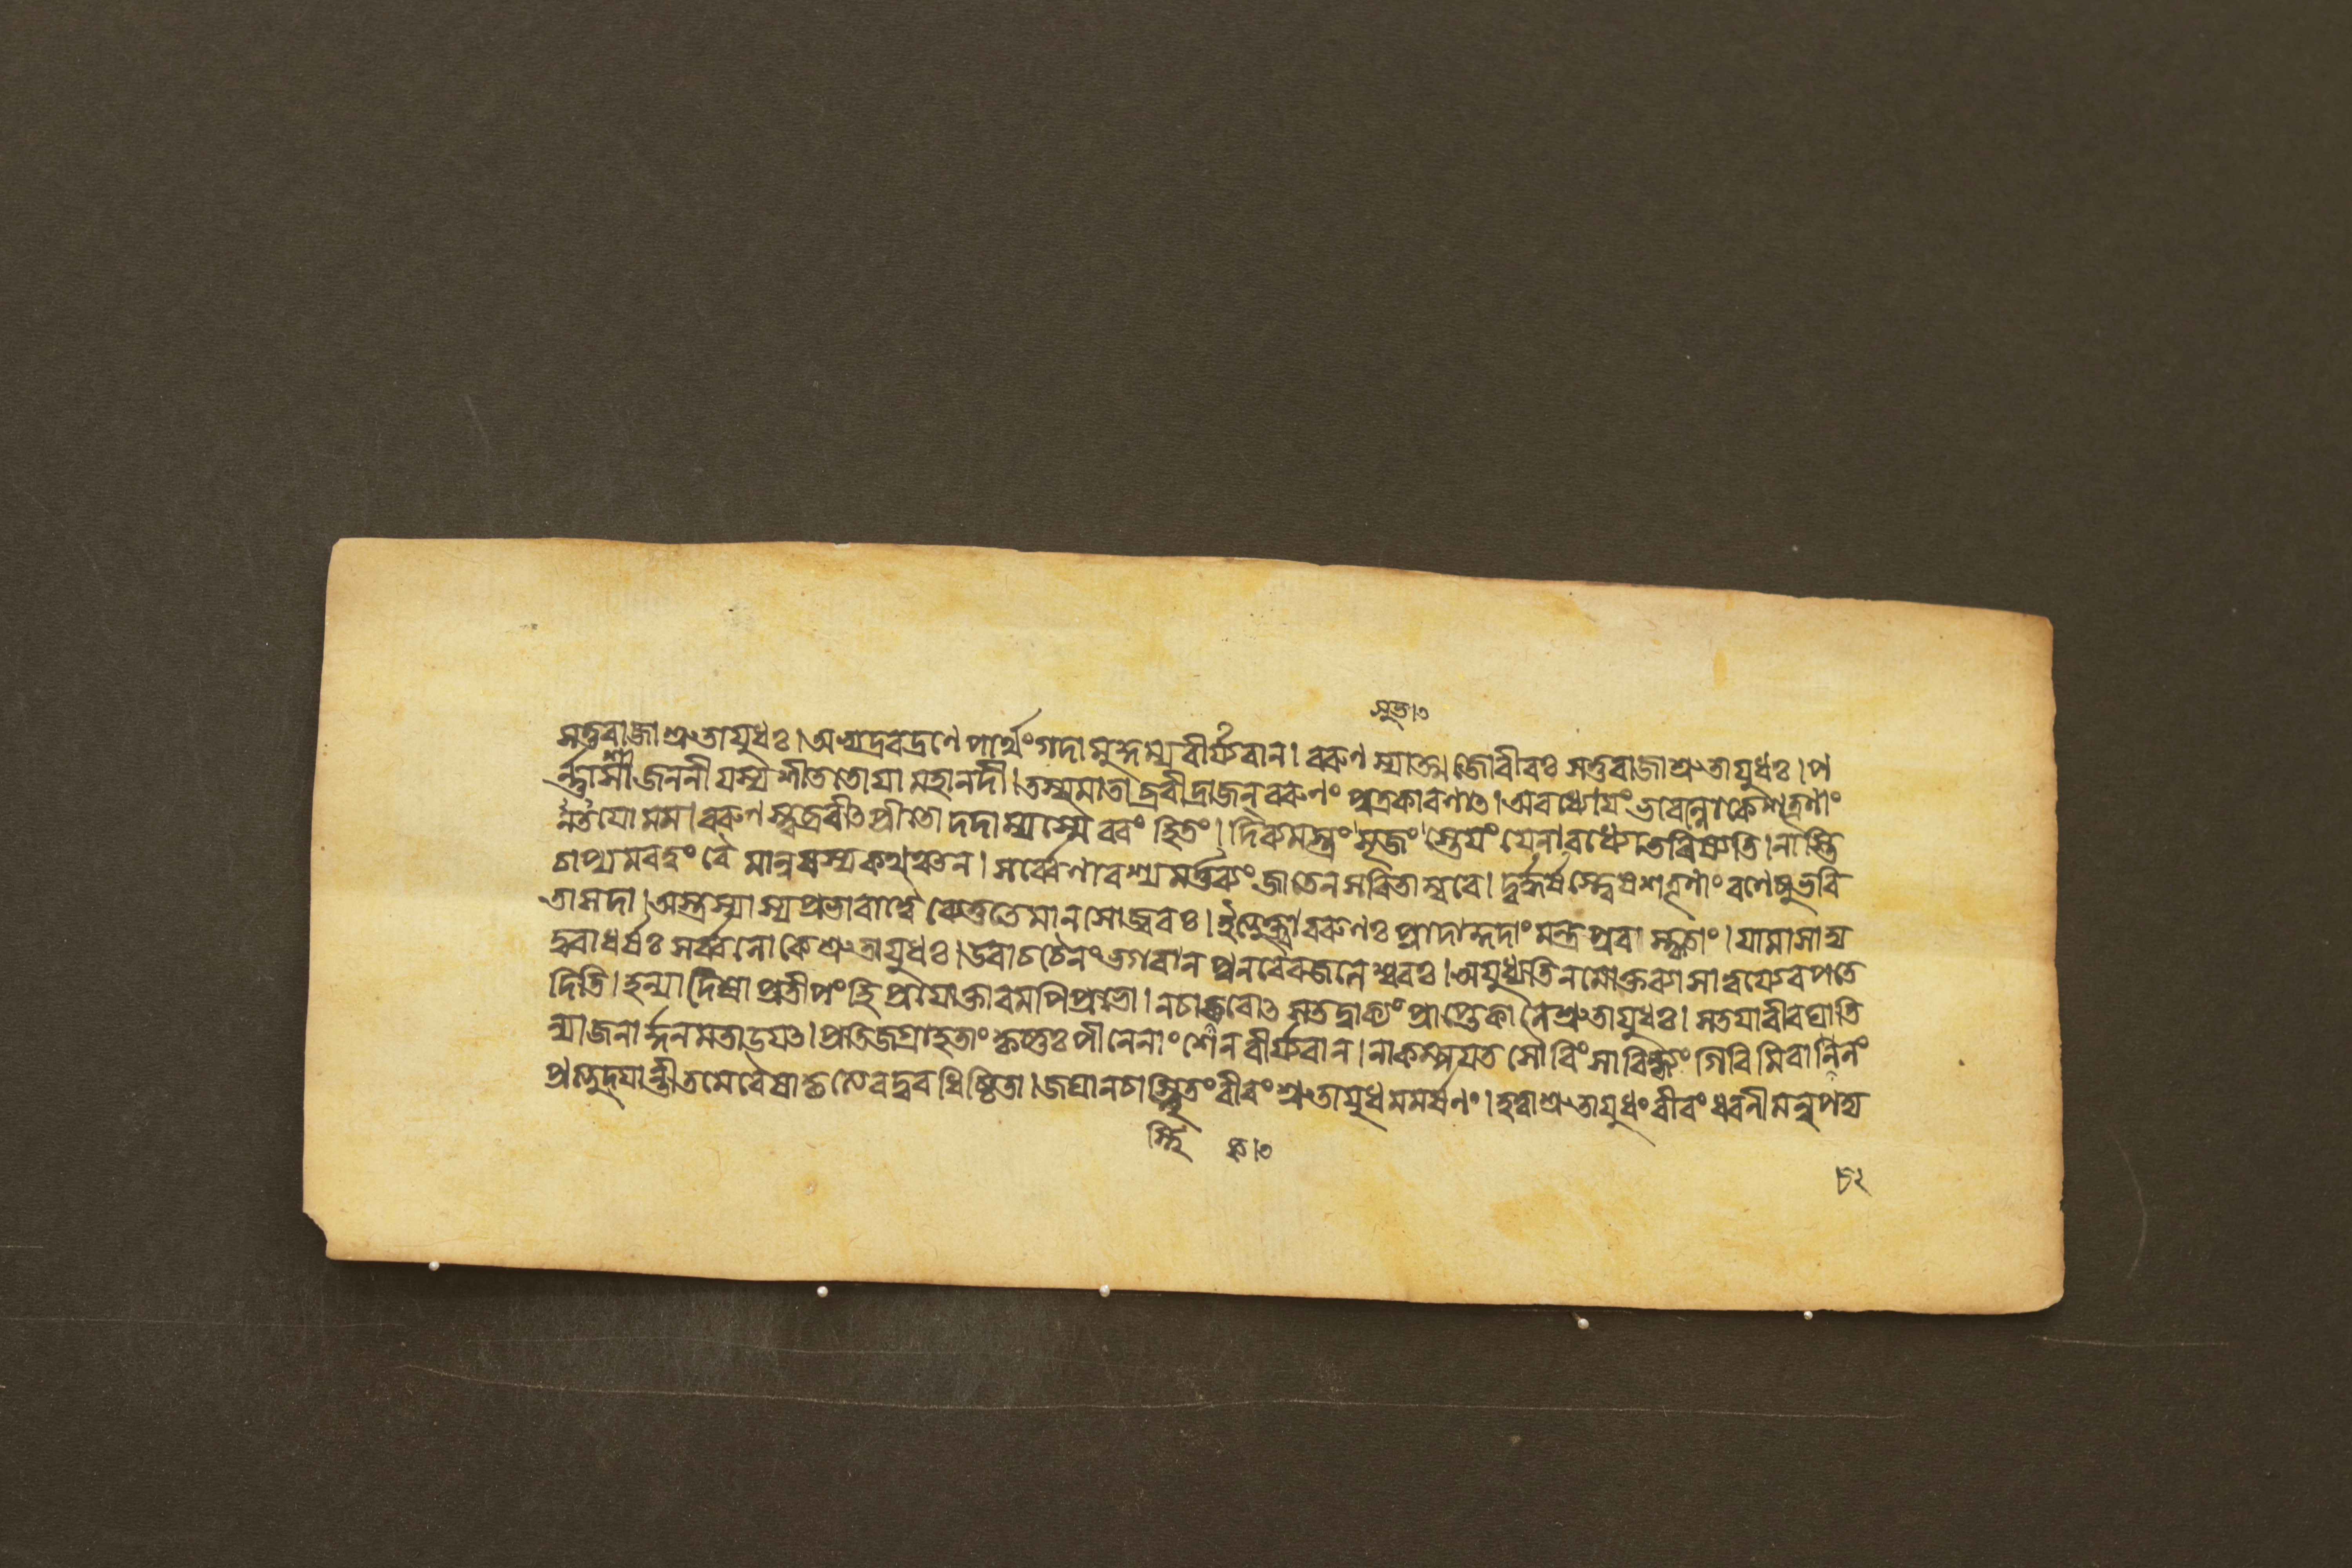 সুত।৩
সতুরাজা শ্রুতায়ুধঃ। অভ্যদ্রবদ্রণে পার্থং গদামুদ্যম্য বীর্য্যবান। বরুণস্যাত্মজো বীরঃ সতুরাজা শ্রুতায়ুধঃ। প
র্ন্নাসা জননী যস্য শীততোয়া মহানদী। তস্যমাতাব্রবীদ্রাজন্ বরুণং পুত্রকারণাৎ। অবধ্যোয়ং ভবেল্লোকে শত্রূণাং
নতয়ো মম। বরুণস্ত্বব্রবীৎ প্রীতো দদাম্যস্মৈ বরং হিতং। দিব্যমস্ত্রং সুতং স্তেয়ং যেনাবধ্যো ভবিষ্যতি। নাস্তি
চাপ্যমরত্বং বৈ মানুষস্য কথঞ্চন। সর্ব্বেণাবশ্য মর্ত্তব্যং জাতেন সরিতাম্বরে। দুর্দ্ধর্ষস্ত্বেষ শত্রূণাং রণেষু ভবি
তা সদা। অস্ত্রস্যাস্য প্রভাবাদ্বৈ ব্যেতুতে মানসো জ্বরঃ। ইত্যুক্ত্বা বরুণঃ প্রাদাদ্গদাং মন্ত্রপুরাস্কৃতাং। যামাসাদ্য
দুরাধর্ষঃ সর্ব্বলোকে শ্রুতায়ুধঃ। উবাচ চৈনং ভগবান পুনরেব জলেশ্বরঃ। অয়ুধ্যতি ন মোক্তব্যা সা ত্বয্যেব পতে
দিতি। হন্যাদেষা প্রতীপং হি প্রয়োক্তারমপি প্রভো। নচাকরোৎ স তদ্বাক্যং প্রাপ্তেকালে শ্রুতায়ুধঃ। সতয়া বীরঘাতি
ন্যা জনার্দ্দনমতাডয়ৎ। প্রতিজগ্রাহ তাং কৃষ্ণঃ পীনেনাংশেন বীর্য্যবান। নাকম্পয়ত সৌরিং সা বিন্ধ্যং গিরিমিবানিলং
কৃত্যেব দুরধিষ্ঠিতা। জঘান চাস্থিতং বীরং শ্রুতায়ুধমমর্ষণং। হত্বা শ্রুতায়ুধং বীরং ধরণীমন্বপদ্য
৮২